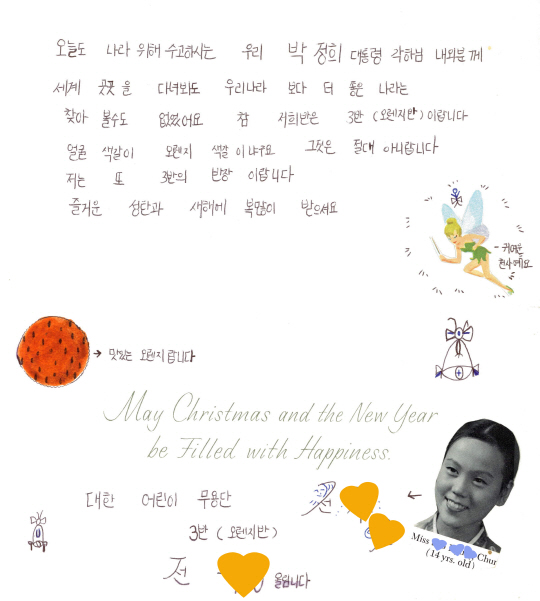 오늘도 나라 위해 수고하시는 우리 박 정희 대통령 각하님 내외분께
세계 곳곳을 다녀봐도 우리나라 보다 더 좋은 나라는
찾아 볼수도 없었어요 참 저희반은 3반 (오렌지반) 이랍니다
얼굴 색갈이 오렌지 색갈 이냐구요 그것은 절대 아니랍니다
저는 또 3반의 반장 이랍니다
즐거운 성탄과 새해에 복많이 받으셔요
- 귀여운
천사예요
→ 맛있는 오렌지 랍니다
May Christmas and the New Year
be Filled with Happiness.
대한 어린이 무용단
3반 (오렌지반)
전
←
Miss Chur
(14 yrs. old)
전 올립니다